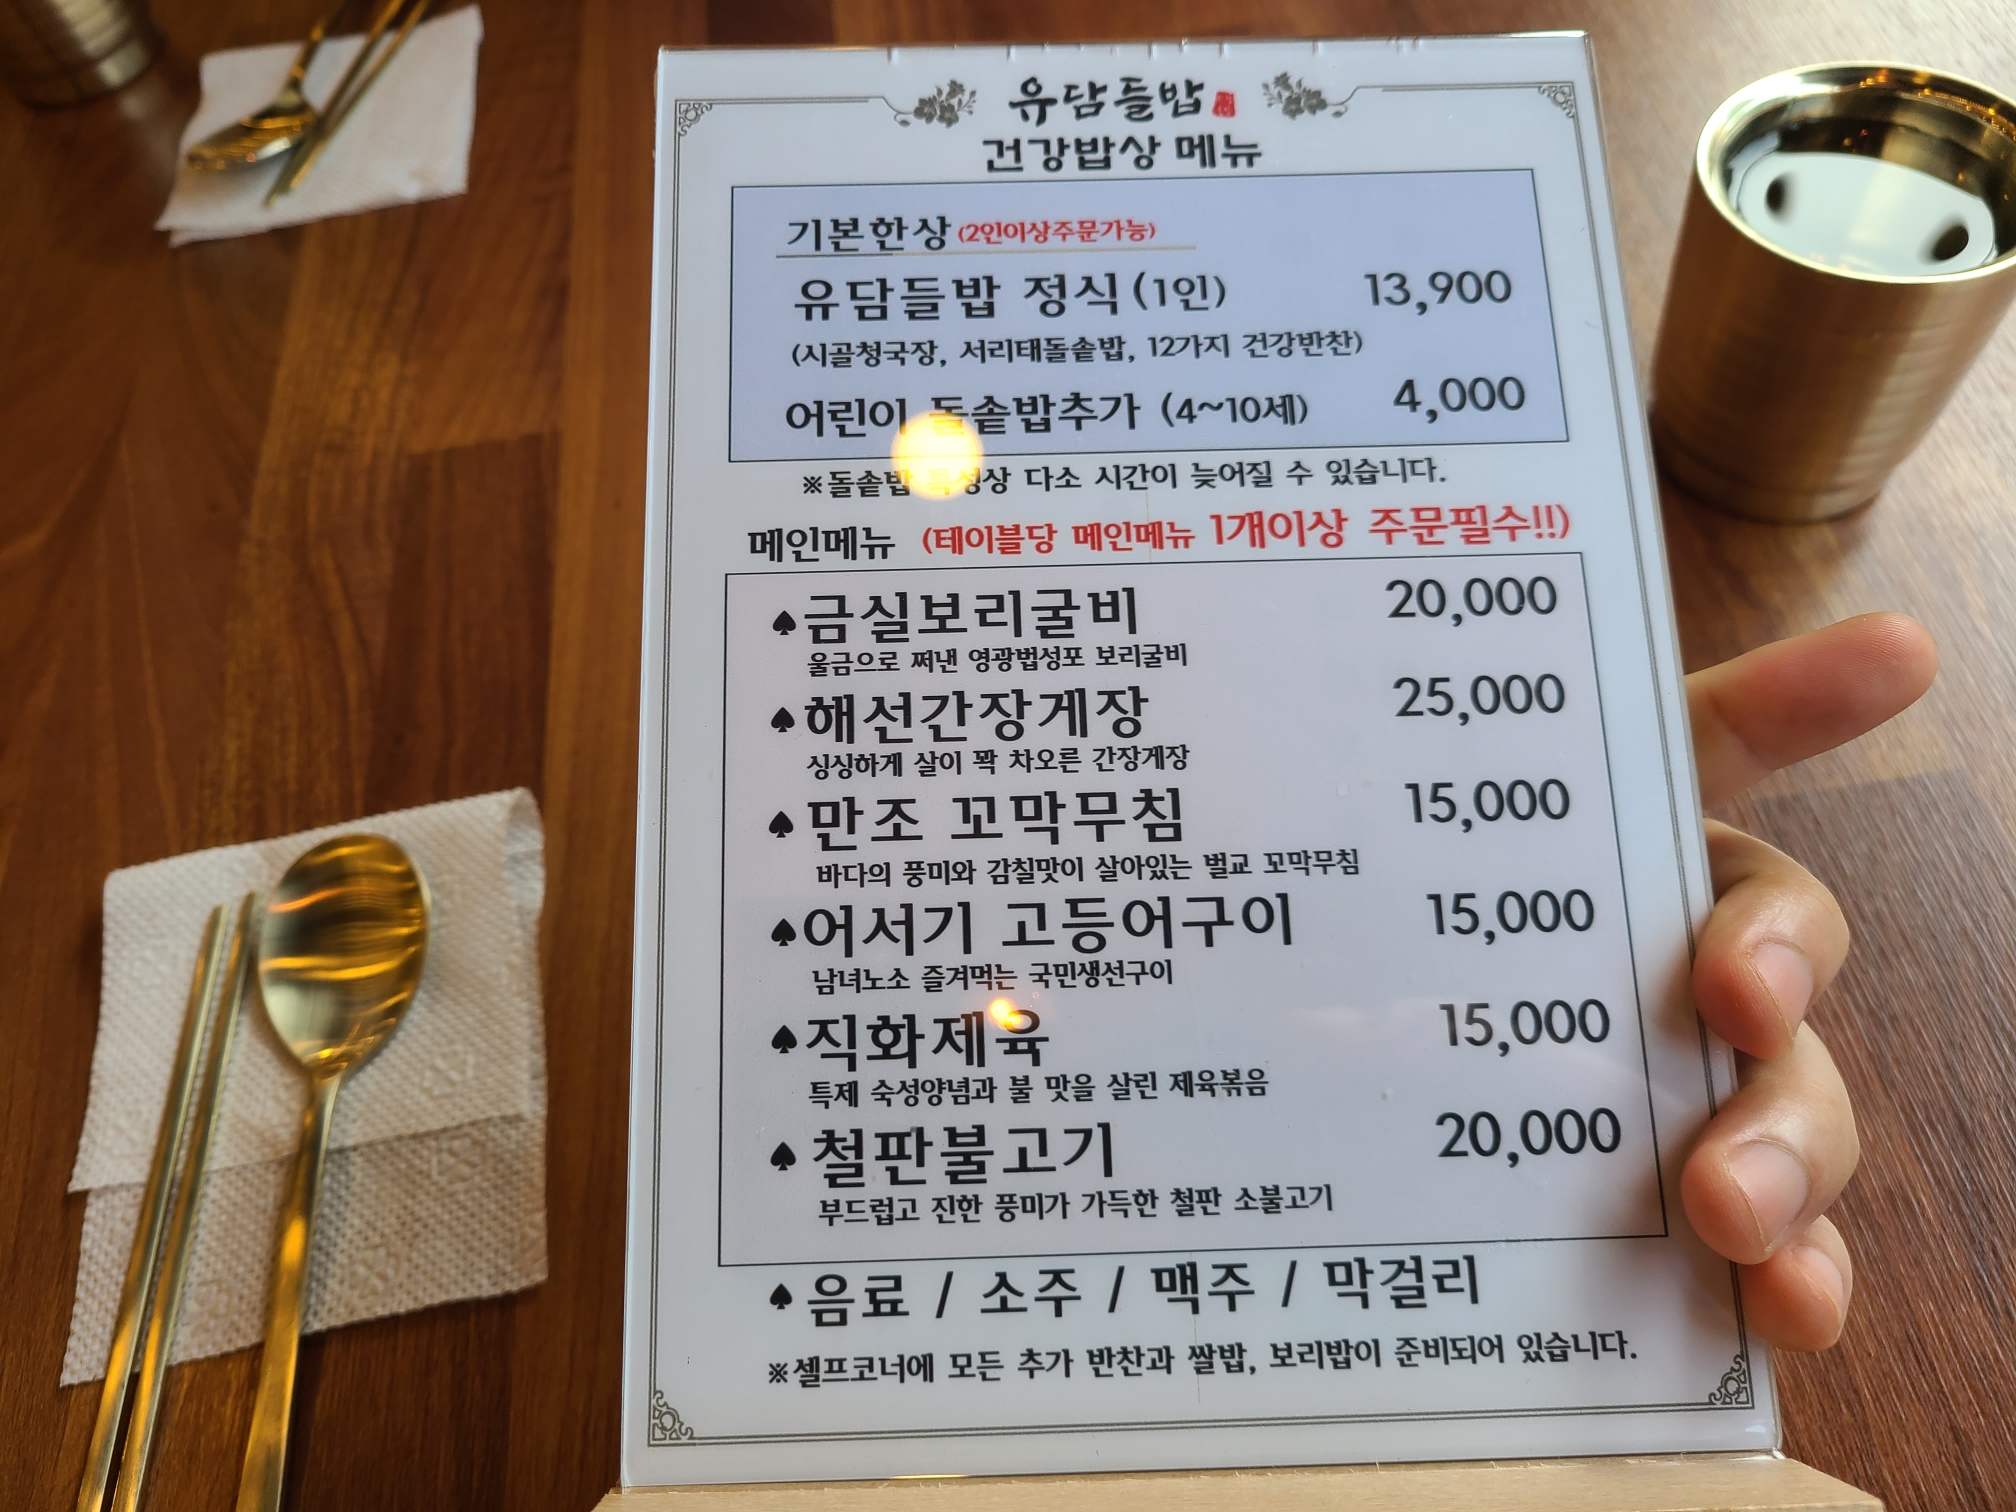 유담들밥
건강밥상 메뉴
기본한상 (2인이상주문가능)
유담들밥 정식 (1인) 13,900
(시골청국장, 서리태돌솥밥, 12가지 건강반찬)
어린이 돌솥밥추가 (4~10세) 4,000
※돌솥밥 특성상 다소 시간이 늦어질 수 있습니다.
메인메뉴 (테이블당 메인메뉴 1개이상 주문필수!!)
♠금실보리굴비 20,000
울금으로 쪄낸 영광법성포 보리굴비
♠해선간장게장 25,000
싱싱하게 살이 꽉 차오른 간장게장
♠만조 꼬막무침 15,000
바다의 풍미와 감칠맛이 살아있는 벌교 꼬막무침
♠어서기 고등어구이 15,000
남녀노소 즐겨먹는 국민생선구이
♠직화제육 15,000
특제 숙성양념과 불 맛을 살린 제육볶음
♠철판불고기 20,000
부드럽고 진한 풍미가 가득한 철판 소불고기
♠음료 / 소주 / 맥주 / 막걸리
※셀프코너에 모든 추가 반찬과 쌀밥, 보리밥이 준비되어 있습니다.